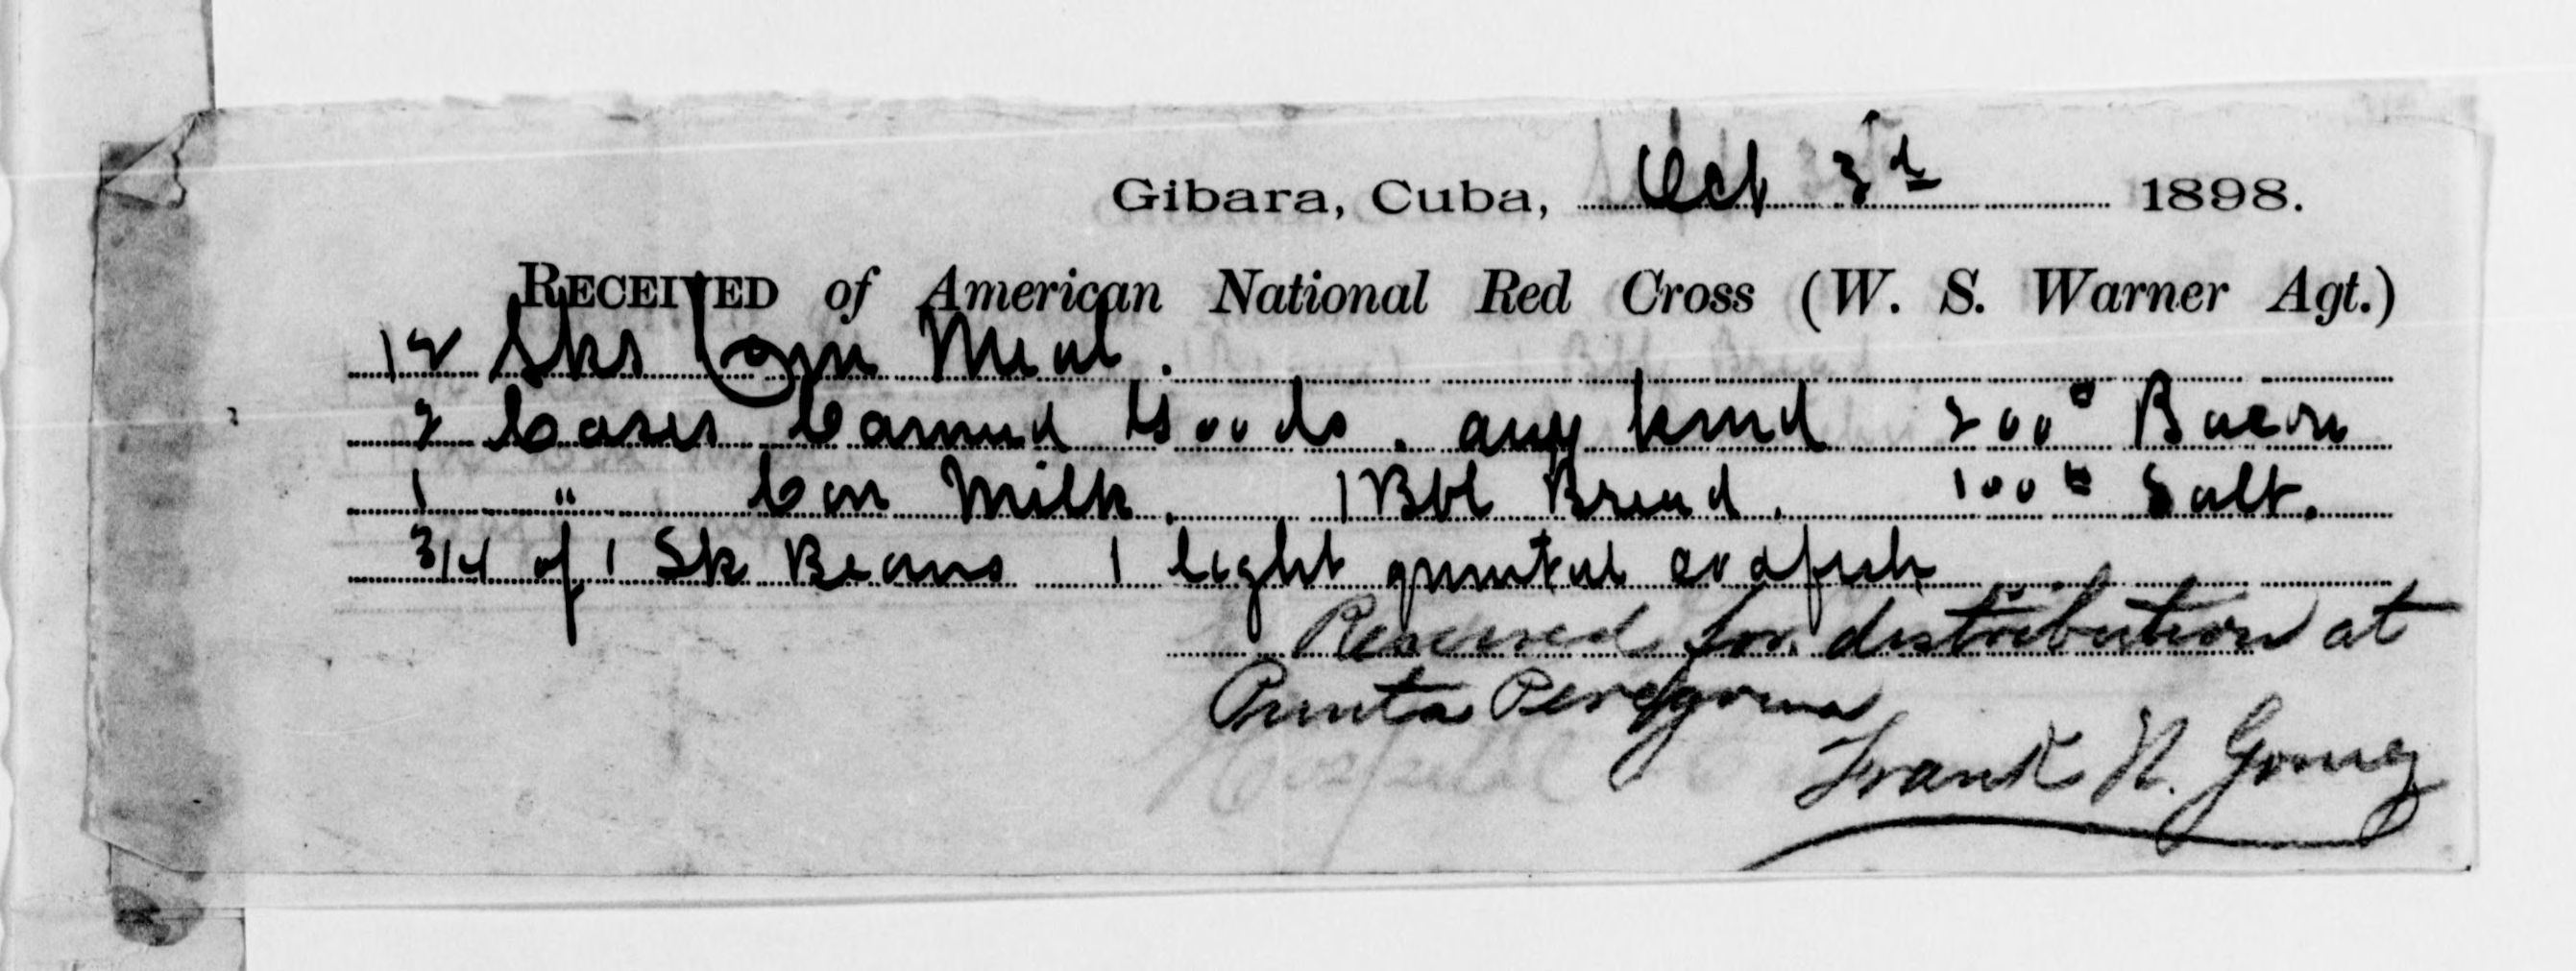 Gibara, Cuba, Oct 3d 1898.
RECEIVED of American National Red Cross (W. S. Warner Agt.)
12 Sks Corn Meal.
2 Cases Canned Goods. any kind 200# Bacon
1 " Con Milk. 1 Bbl Bread. 100# Salt.
3/4 of 1 Sk Beans 1 light quintal codfish
Received for distribution at
Punta Peregrina
Frank N. Gomez